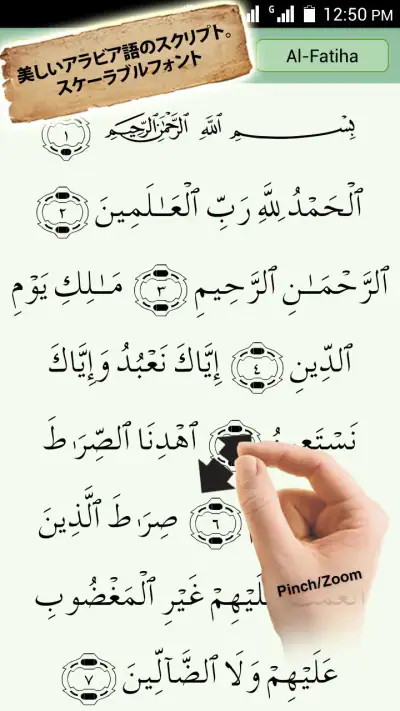 12:50 PM
美しいアラビア語のスクリプト。
スケーラブルフォント
Al-Fatiha
بِسْمِ ٱللَّهِ ٱلرَّحْمَٰنِ ٱلرَّحِيمِ ١
ٱلْحَمْدُ لِلَّهِ رَبِّ ٱلْعَـٰلَمِينَ ٢
ٱلرَّحْمَـٰنِ ٱلرَّحِيمِ ٣ مَـٰلِكِ يَوْمِ
ٱلدِّينِ ٤ إِيَّاكَ نَعْبُدُ وَإِيَّاكَ
ٱهْدِنَا ٱلصِّرَٰطَ
٦ صِرَٰطَ ٱلَّذِينَ
عَلَيْهِمْ غَيْرِ ٱلْمَغْضُوبِ
عَلَيْهِمْ وَلَا ٱلضَّآلِّينَ ٧
Pinch/Zoom